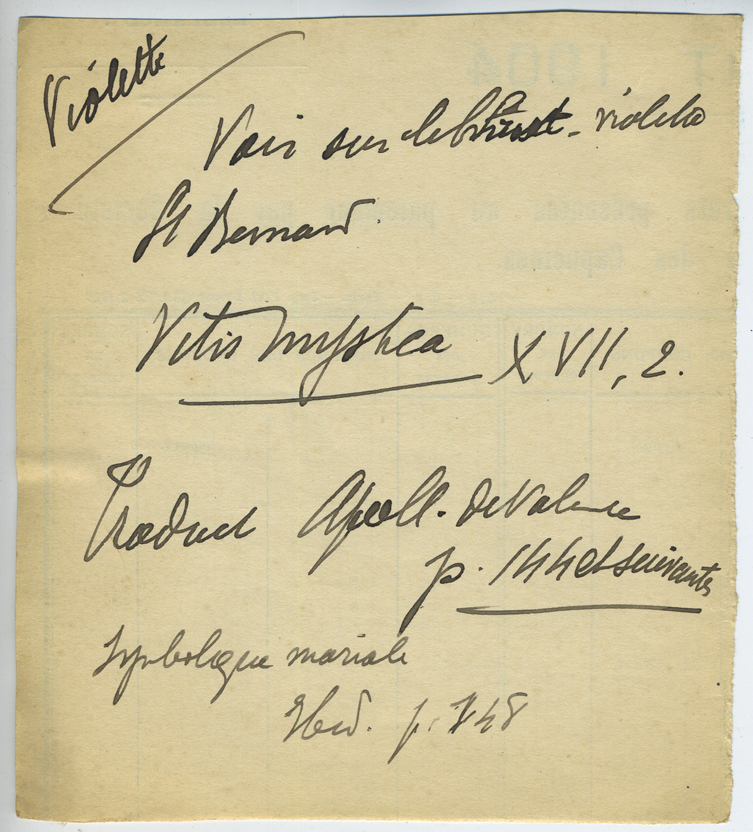 Violette
Voir sur le Christ - violette
St Bernard.
Vitis mystica XVII, 2.
Traduct Apoll. de Valence
p. 144 et suivantes
Symbolique mariale
Ibid. p. 148